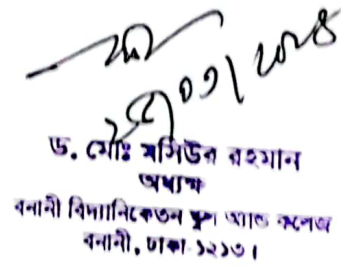 ড. মোঃ মসিউর রহমান
অধ্যক্ষ
বনানী বিদ্যানিকেতন স্কুল অ্যান্ড কলেজ
বনানী, ঢাকা-১২১৩।